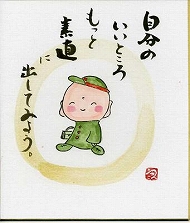 自分の
いいところ
もっと
素直
に
出してみよう。